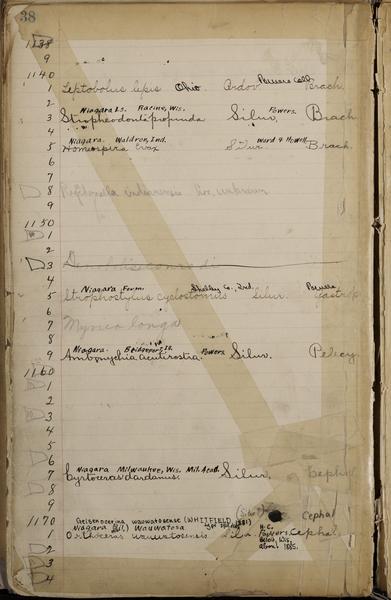 38
1138
9
1140
1 Leptobolus lepis Ohio. Ordov. Powers Coll. Brach.
2 Niagara Ls. Racine, Wis. Powers.
3 Stropheodonta profunda Silur. Brach.
4 Niagara. Waldron, Ind. Ward & Howell.
5 Homeospira Evax Silur. Brach.
6
7
8 indianensis unknown
9
1150
1
2
3
4 Niagara Form. Shelby Co., Ind. Powers
5 Strophostylus cyclostomus Silur. Gastrop.
6
7 longa
8 Niagara. Bridgeport, Ill. Powers
9 Ambonychia acutirostra. Silur. Pelecy.
1160
1
2
3
4
5
6 Niagara Milwaukee, Wis. Mil. Acad.
7 Cyrtoceras dardanus. Silur. Cephal.
8
9
1170 Geisonocerina wauwatosense (WHITFIELD, 1881) Cephal
Niagara (Sil.) Wauwatosa
1 Orthoceras wauwatosensis Sil. H.C. Powers, Beloit, Wis. April 1885. Cephal.
2
3
4